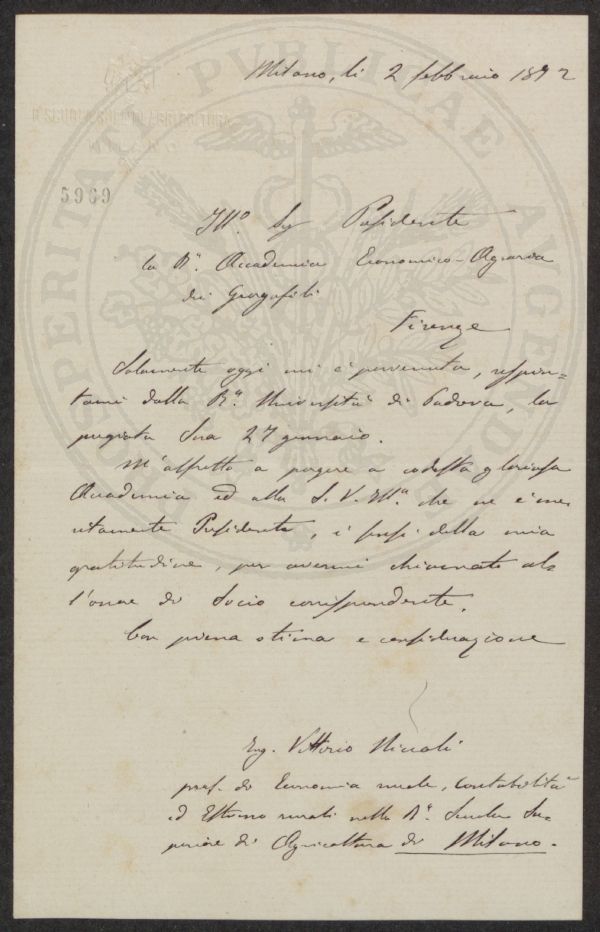 Milano, li 2 febbraio 1892
R. SCUOLA SUP. DI AGRICOLTURA
MILANO
5969
Ill.º Sig Presidente
la R.ª Accademia Economico-Agraria
dei Georgofili
Firenze
Solamente oggi mi è pervenuta, respin-
tami dalla R.ª Università di Padova, la
pregiata Sua 27 gennaio.
M'affretto a porgere a codesta gloriosa
Accademia ed alla S. V. Ill.ª che ne è me
ritamente Presidente, i sensi della mia
gratitudine, per avermi chiamato al-
l'onore di Socio corrispondente.
Con piena stima e considerazione
Ing. Vittorio Niccoli
prof. di Economia rurale, contabilità
ed Estimo rurali nella R.ª Scuola Su-
periore di Agricoltura di Milano.
PROSPERITATI PVBLICAE AVGENDAE